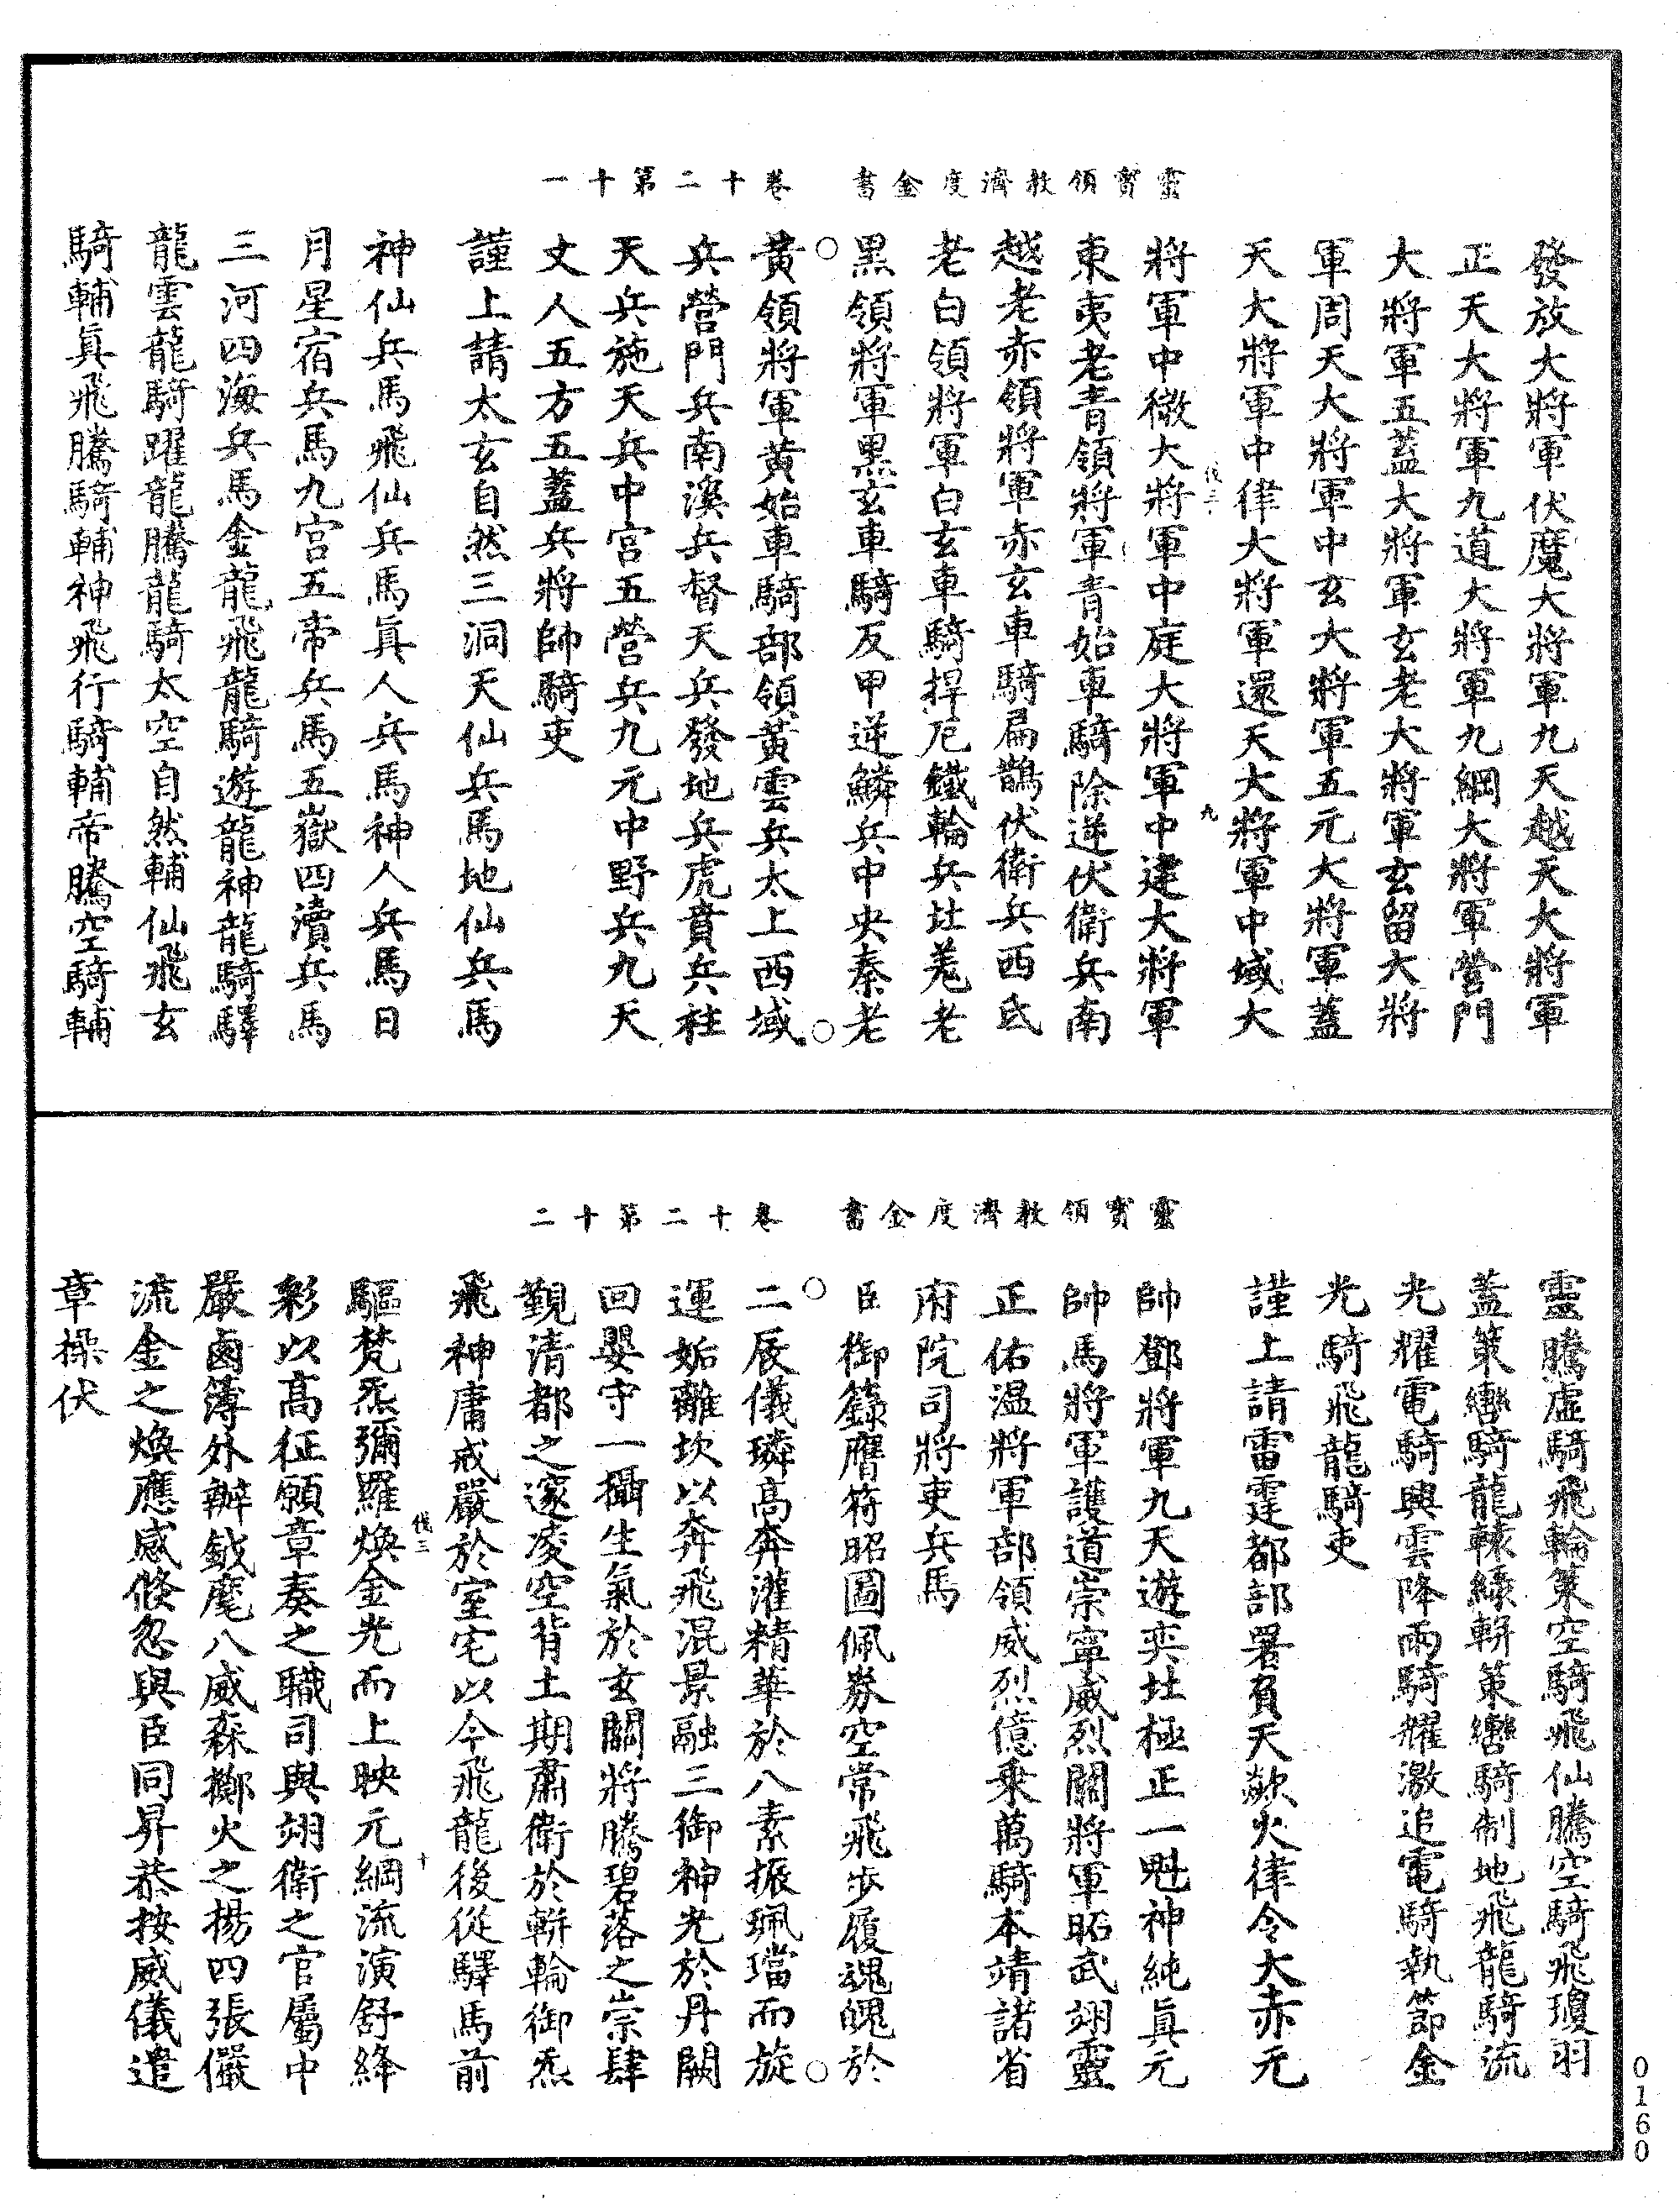 靈寳領教濟度金書　卷二十第十一
發放大將軍伏魔大將軍九天越天大將軍
正天大將軍九道大將軍九綱大將軍營門
大將軍五蓋大將軍玄老大將軍玄留大將
軍周天大將軍中玄大將軍五元大將軍蓋
天大將軍中律大將軍還天大將軍中域大
將軍中徵大將軍中庭大將軍中建大將軍
東夷老青領將軍青始車騎除逆伏衛兵南
越老赤領將軍赤玄車騎扁鵲伏衛兵西氐
老白領將軍白玄車騎捍厄鐵輪兵北羌老
黒領將軍黒玄車騎反甲逆鱗兵中央秦老
黄領將軍黄始車騎部領黄雲兵太上西域
兵營門兵南溪兵督天兵發地兵虎賁兵柱
天兵施天兵中宮五營兵九元中野兵九天
丈人五方五蓋兵將帥騎吏
謹上請太玄自然三洞天仙兵馬地仙兵馬
神仙兵馬飛仙兵馬眞人兵馬神人兵馬日
月星宿兵馬九宮五帝兵馬五嶽四瀆兵馬
三河四海兵馬金龍飛龍騎遊龍神龍騎驛
龍雲龍騎躍龍騰龍騎太空自然輔仙飛玄
騎輔眞飛騰騎輔神飛行騎輔帝騰空騎輔
靈寳領教濟度金書　卷二十第十二
靈騰虛騎飛輪策空騎飛仙騰空騎飛瓊羽
蓋策轡騎龍轅綠軿策轡騎制地飛龍騎流
光耀電騎興雲降雨騎耀激追電騎執節金
光騎飛龍騎吏
謹上請雷霆都部署負天歘火律令大赤元
帥鄧將軍九天遊奕北極正一魁神純眞元
帥馬將軍護道崇寧威烈關將軍昭武翊靈
正佑温將軍部領威烈億乗萬騎本靖諸省
府院司將吏兵馬
臣御籙膺符昭圖佩券空常飛步履魂魄於
二辰儀璘高奔灌精華於八素振珮璫而旋
運姤離坎以奔飛混景融三御神光於丹闕
回嬰守一攝生氣於玄關將騰碧落之崇肆
覲清都之邃凌空背土期肅衛於軿輪御炁
飛神庸戒嚴於室宅以今飛龍後從驛馬前
驅梵炁彌羅煥金光而上映元綱流演舒絳
彩以高征願章奏之職司與翊衛之官屬中
嚴鹵簿外辦鉞麾八威森擲火之揚四張儼
流金之煥應感倐忽與臣同昇恭按威儀遣
章操伏
0160